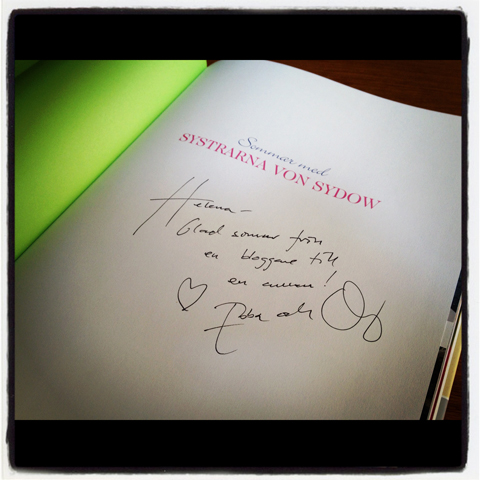 Sommar med
SYSTRARNA VON SYDOW
Helena –
Glad sommar från
en bloggare till
en annan!
Ebba och